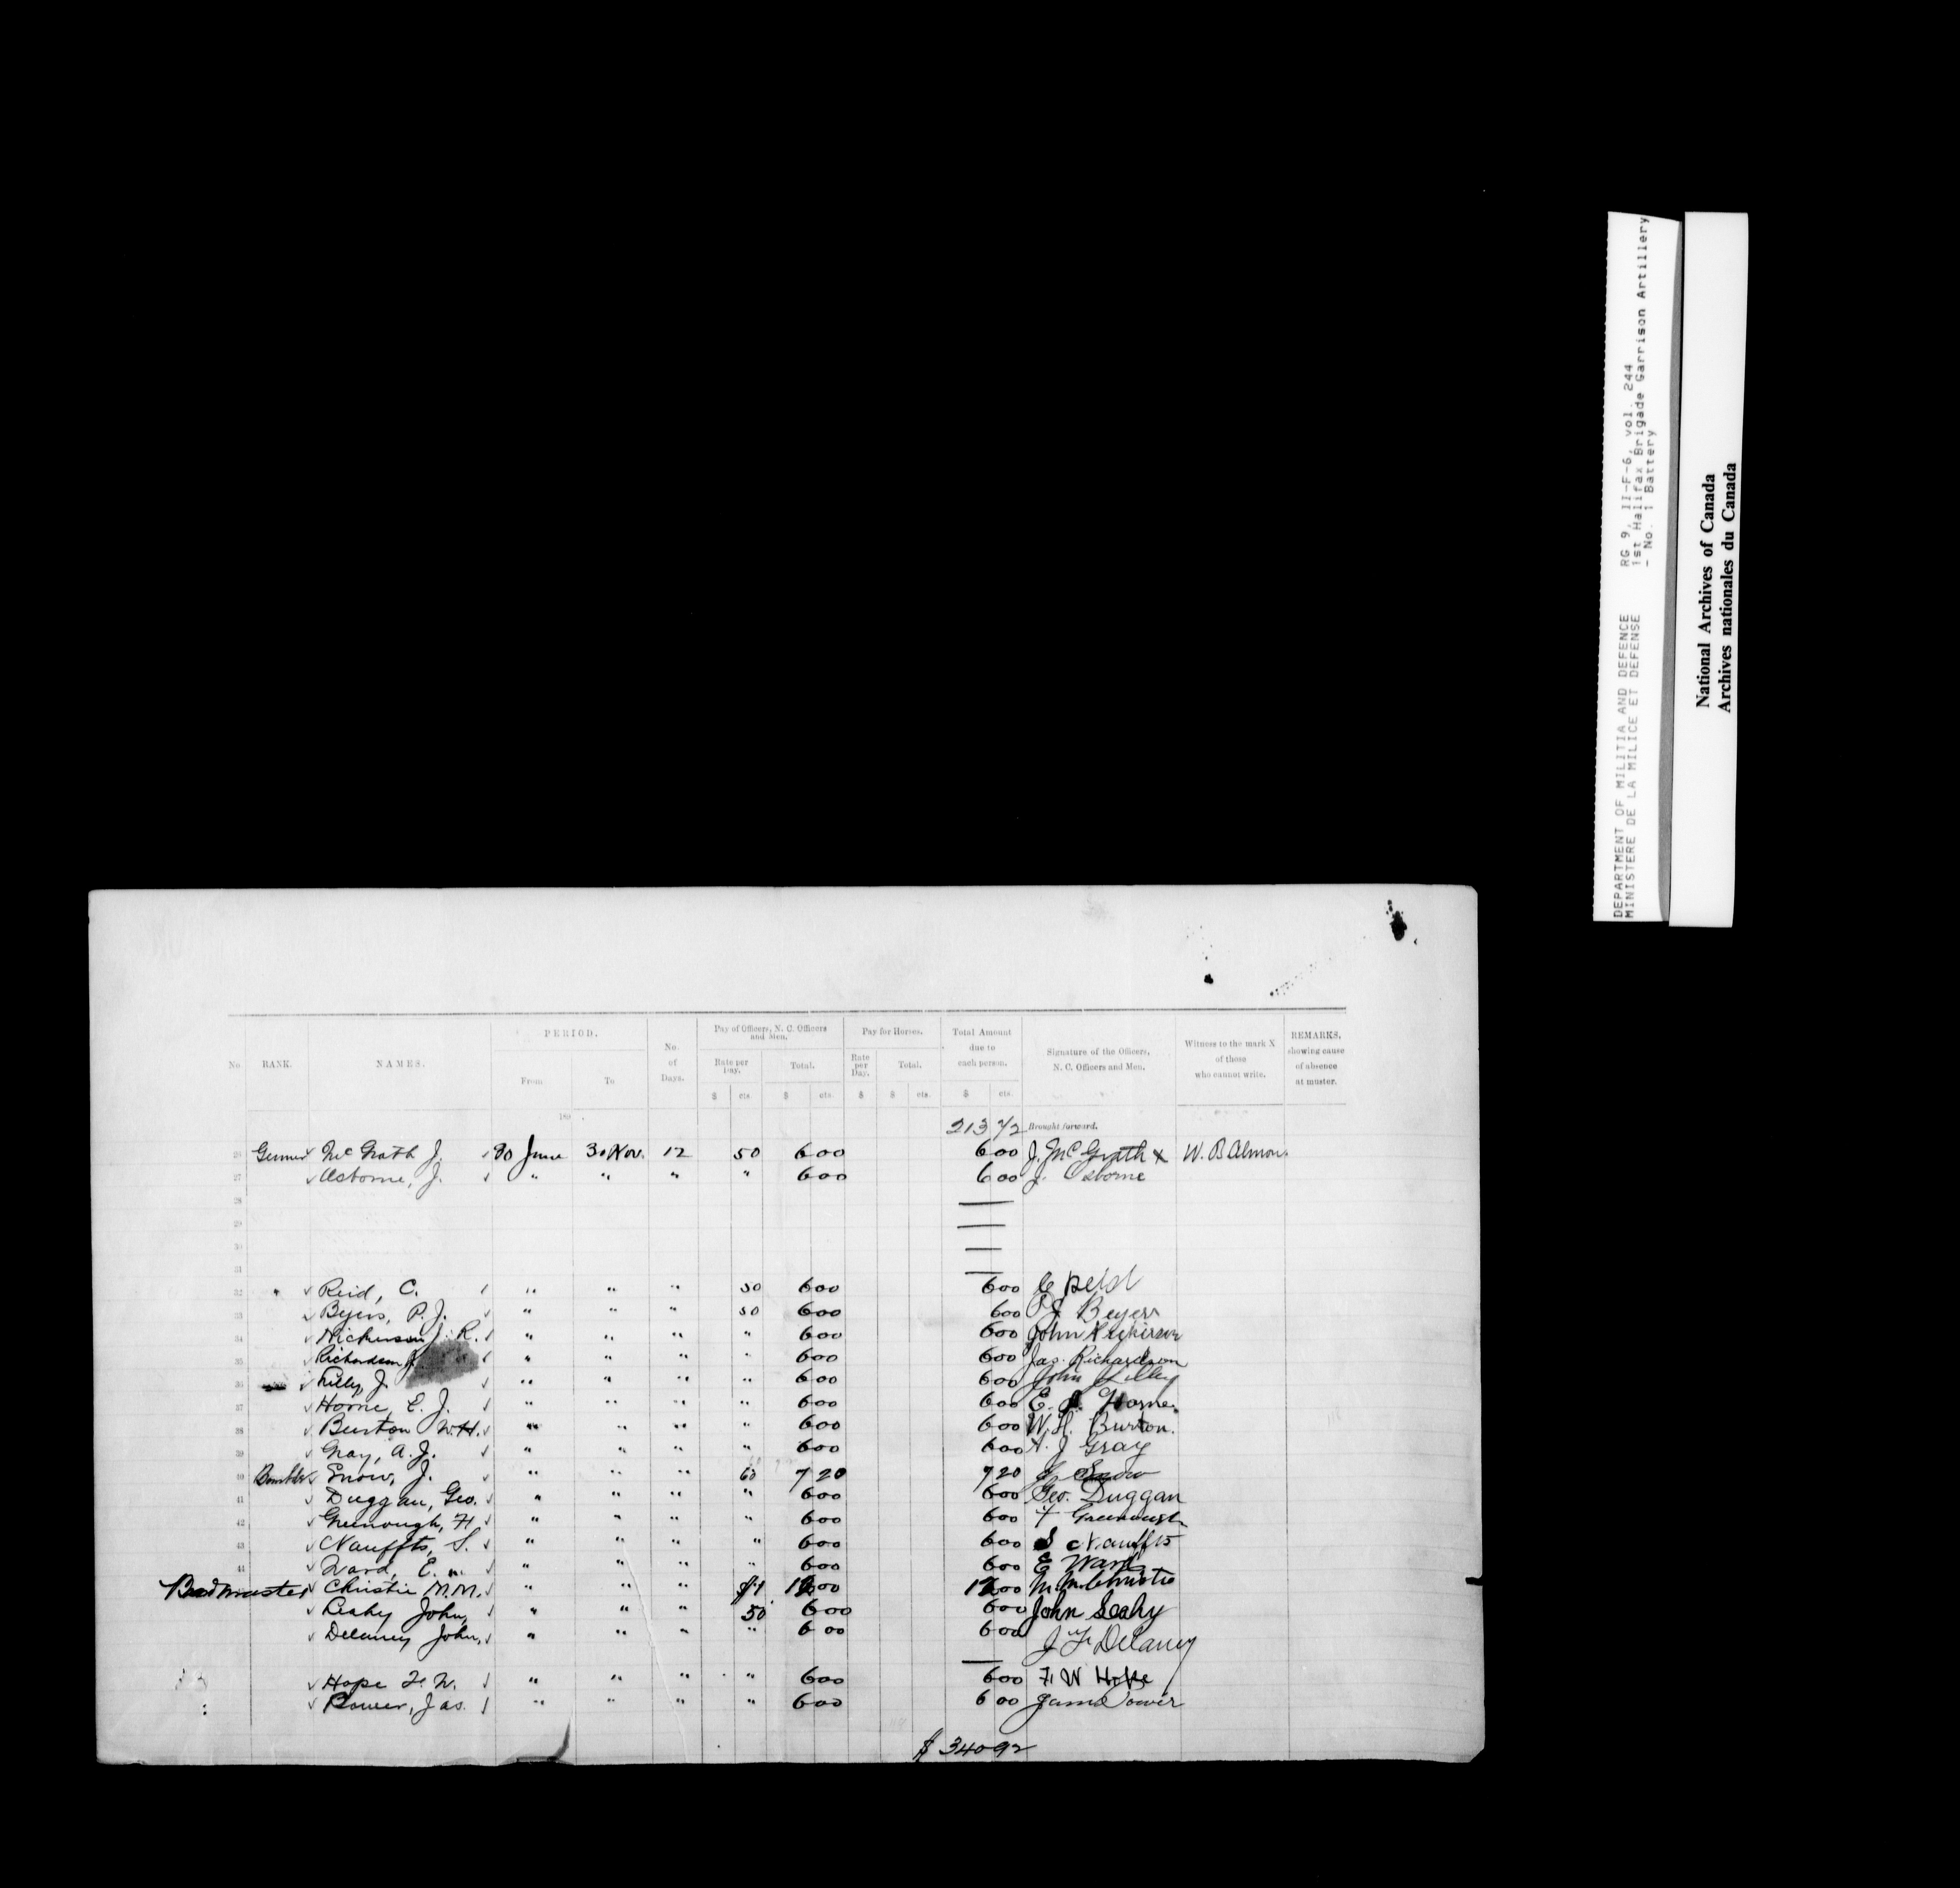 DEPARTMENT OF MILITIA AND DEFENCE RG 9, II-F-6, vol. 244
MINISTERE DE LA MILICE ET DEFENSE 1st Halifax Brigade Garrison Artillery
- No. 1 Battery
National Archives of Canada
Archives nationales du Canada
No. RANK. NAMES. PERIOD. From To No. of Days. Pay of Officers, N. C. Officers and Men. Rate per Day. $ cts. Total. $ cts. Pay for Horses. Rate per Day. $ Total. $ cts. Total Amount due to each person. $ cts. Signature of the Officers, N. C. Officers and Men. Witness to the mark X of those who cannot write. REMARKS, showing cause of absence at muster.
189
213 72 Brought forward.
26 Gunner McGrath J. 30 June 30 Nov. 12 50 6 00 6 00 J. McGrath x W. B Almon.
27 Osborne, J. " " " " 6 00 6 00 J. Osborne
28
29
30
31
32 " Reid, C. " " " 50 6 00 6 00 C Reid
33 Byers, P. J. " " " 50 6 00 6 00 P J Beyers
34 Nickerson J. R. " " " " 6 00 6 00 John Nickerson
35 Richardson J " " " " 6 00 6 00 Jas. Richardson
36 Lilly, J " " " " 6 00 6 00 John Lilley
37 Horne, E. J. " " " " 6 00 6 00 E. J. Horne.
38 Burton W. H. " " " " 6 00 6 00 W. H. Burton.
39 Gray, A. J. " " " " 6 00 6 00 A. J Gray
40 Bombdr Snow, J. " " " 60 7 20 7 20 J Snow
41 Duggan, Geo. " " " " 6 00 6 00 Geo. Duggan
42 Greenough, H " " " " 6 00 6 00 Greenough
43 Nauffts, S. " " " " 6 00 6 00 S Nauffts
44 Ward, E. " " " " 6 00 6 00 E Ward
Bandmaster Christie M. M. " " " $1 12 00 12 00 M. M. Christie
Leahy John, " " " 50 6 00 6 00 John Leahy
Delaney John, " " " " 6 00 6 00 J F Delaney
Hope F. W. " " " " 6 00 6 00 F. W Hope
Power, Jas. " " " " 6 00 6 00 James Power
$ 340 92